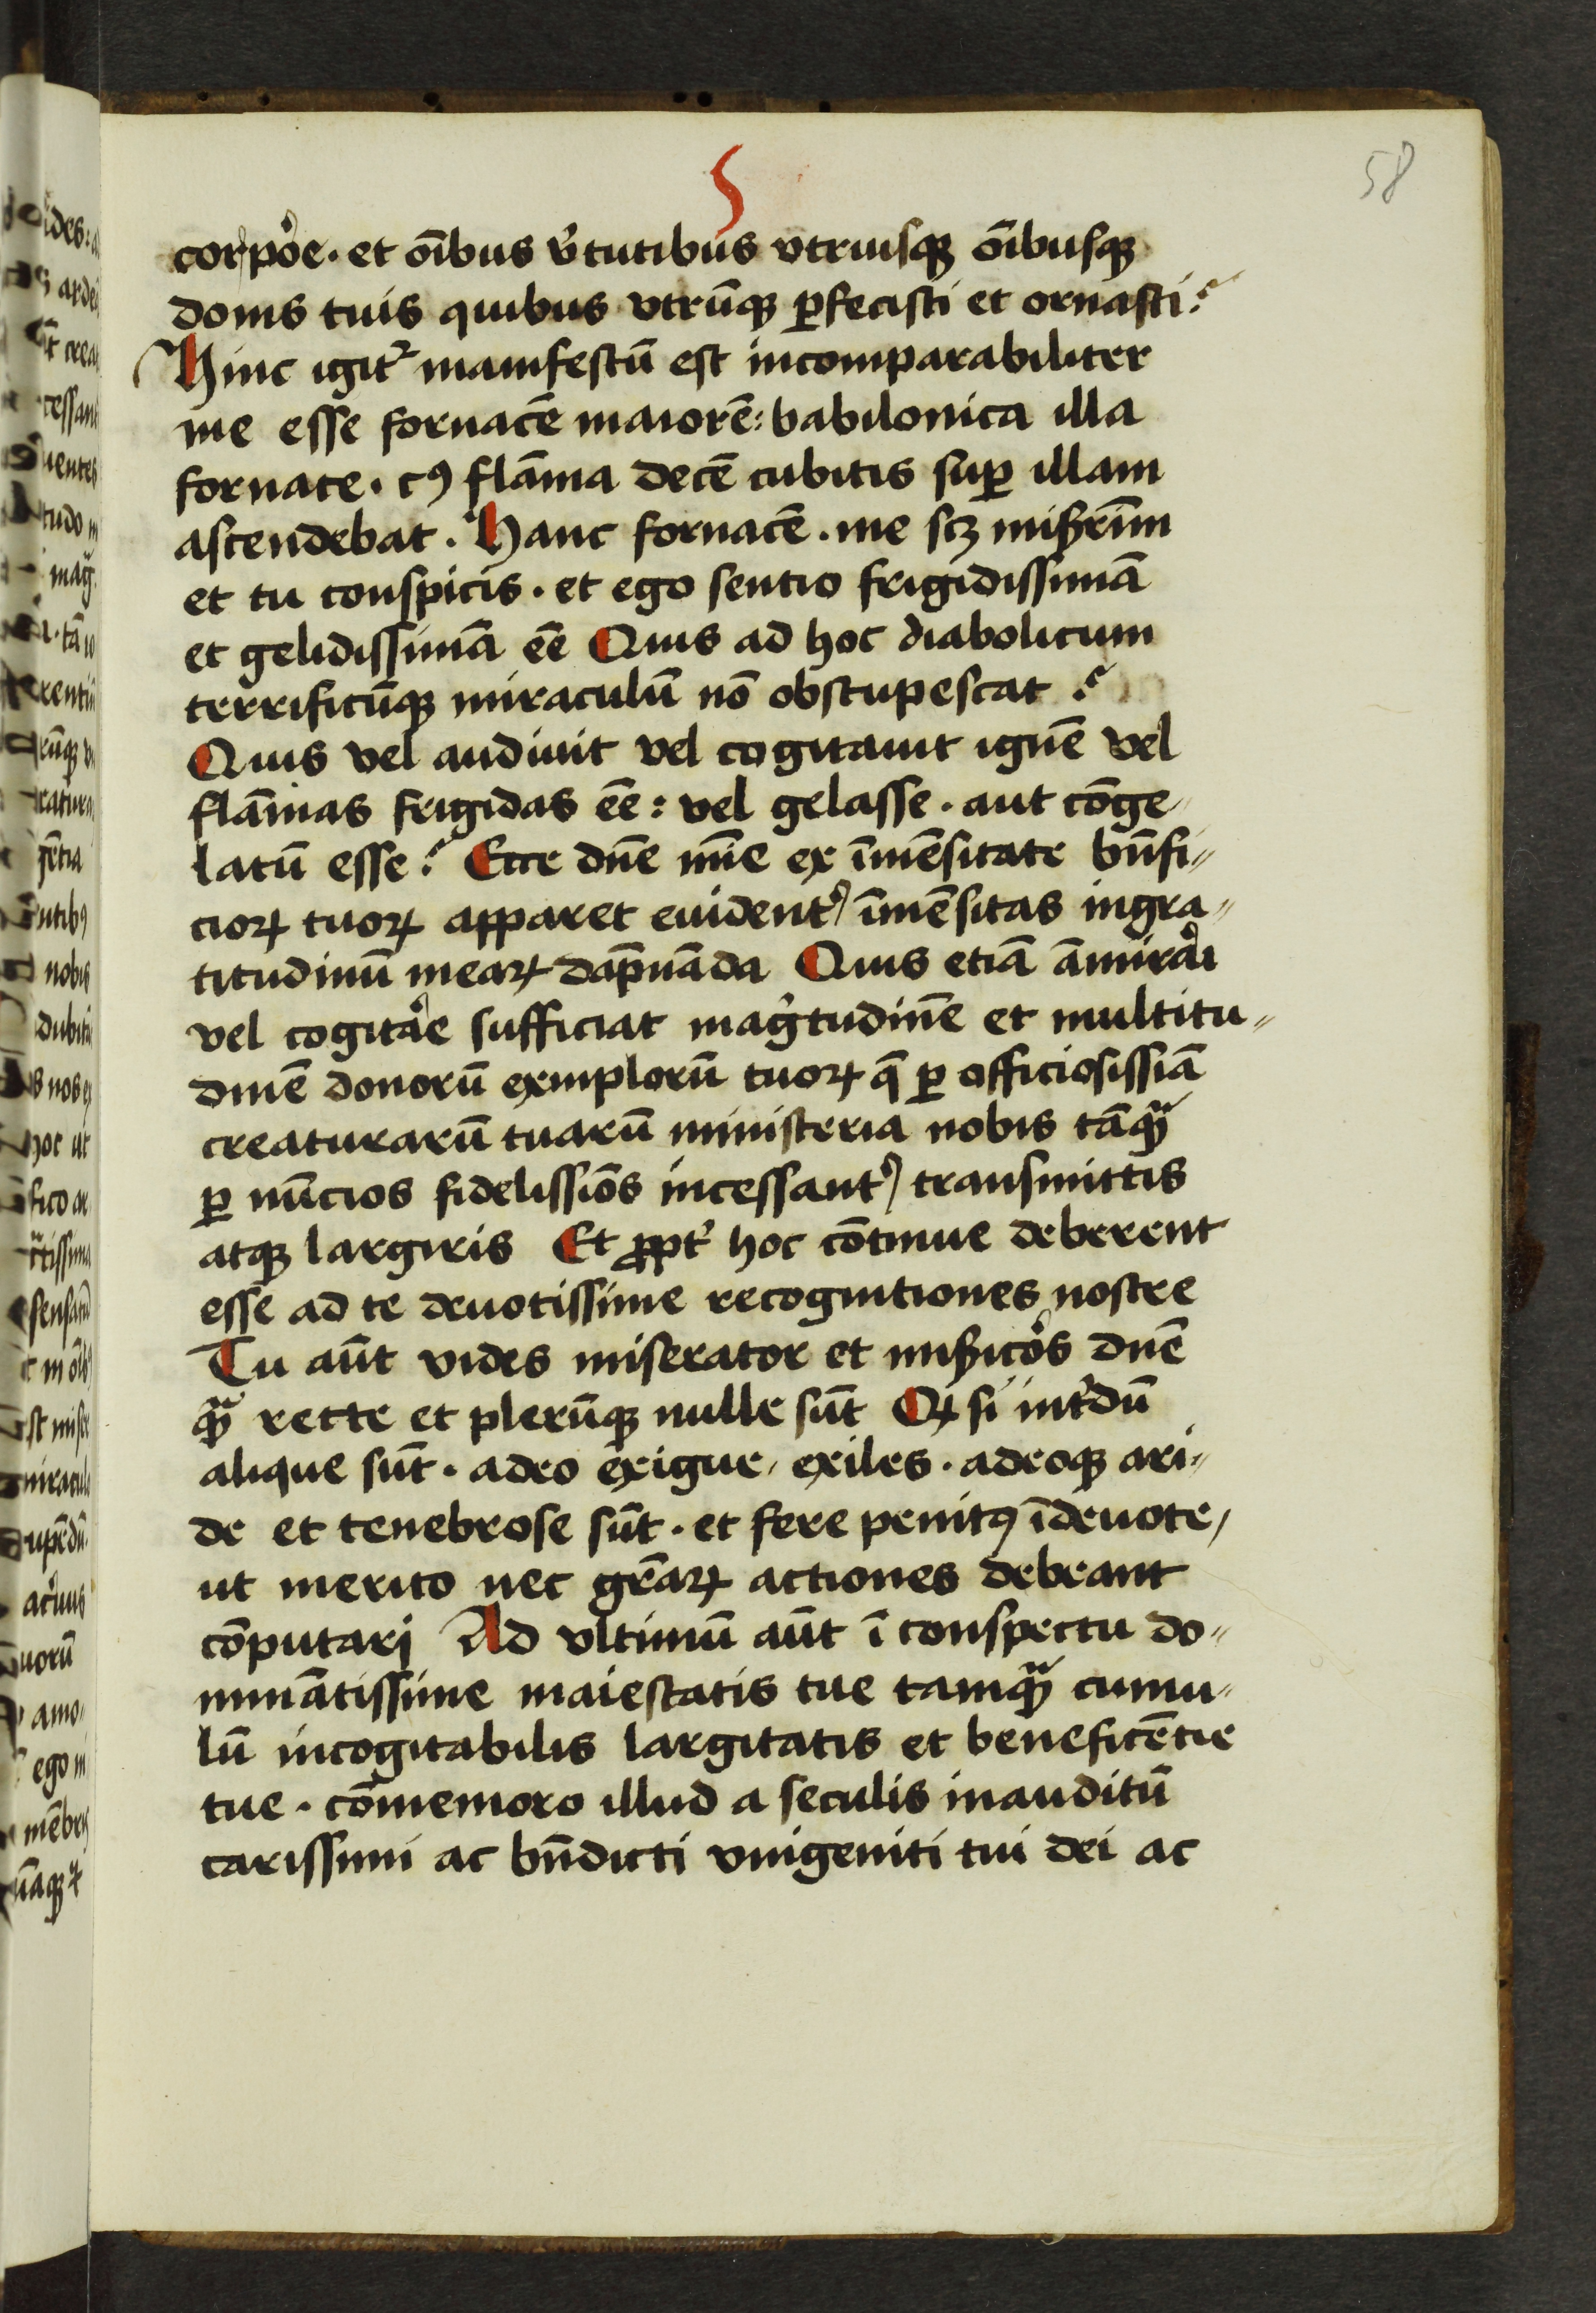 58
corpoꝛ̉e · et oı̄bus v̉tutibus vtriusqꝫ oı̄busqꝫ
donis tuis quibus vtrūqꝫ ꝑfecisti et ornasti?
Hinc igit᷑ manifestū est incomparabiliter
me esse fornacē maiorē: babilonica illa
fornace · cꝰ flāma decē cubitis suꝑ illam
ascendebat · Hanc fornacē · me scꝫ miẜrimū
et tu conspicis · et ego sentio frigidissimā
et gelidissimā eē Quis ad hoc diabolicum
terrificūqꝫ miraculū nō obstupescat ?
Quis vel audiuit vel cogitauit ignē vel
flāmas frigidas eē: vel gelasse · aut cōge⸗
latū esse? Ecce dn̄e mīe ex īmēsitate bn̄fi⸗
cioꝝ tuoꝝ apparet euident᷑ īmēsitas ingra⸗
titudinū meaꝝ dāpnāda Quis etiā āmirari
vel cogitare sufficiat mag̉tudinē et multitu⸗
dinē donorū exmplorū tuoꝝ q̄ ꝑ officiosissīā
creaturarū tuarū ministeria nobis tāqꝫᷓ
ꝑ nūcios fidelissīos incessant᷑ transmittis
atqꝫ largiris Et ꝓpt᷑ hoc cōtinue deberent
esse ad te deuotissime recognitiones nostre
Tu aūt vides miserator et miẜicors dn̄e
qꝫᷓ recte et plerūqꝫ nulle sūt Qꝫ si int᷑dū
alique sūt · adeo exigue, exiles · adeoqꝫ ari⸗
de et tenebrose sūt · et fere penitꝰ īdeuote,
ut merito nec gr̄aꝝ actiones debeant
cōputari Ad vltimū aūt ī conspectu do⸗
minātissime maiestatis tue tamqꝫᷓ cumu⸗
lū incogitabilis largitatis et beneficētie
tue · cōmemoro illud a seculis inauditū
carissimi ac bn̄dicti vnigeniti tui dei ac